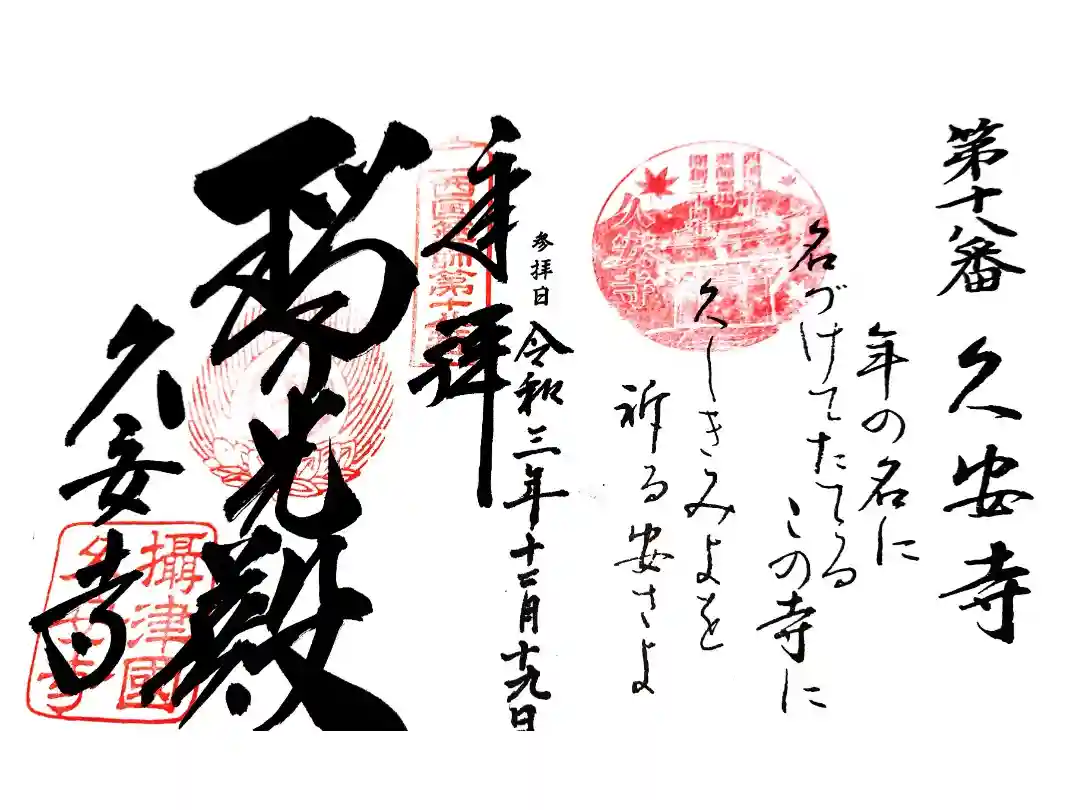 第十八番 久安寺
年の名に
名づけてたてる
この寺に
久しきみよを
祈る安さよ
久安寺
参拝日 令和三年十二月十九日
奉拝
光殿
久安寺
攝津國
久安寺